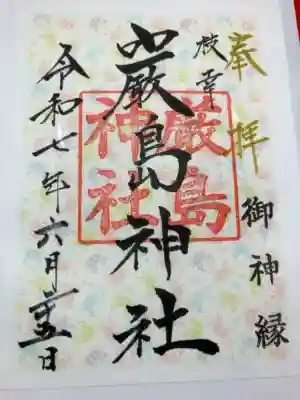 奉拝
枝幸
御神縁
厳島神社
厳島神社
令和七年六月十五日